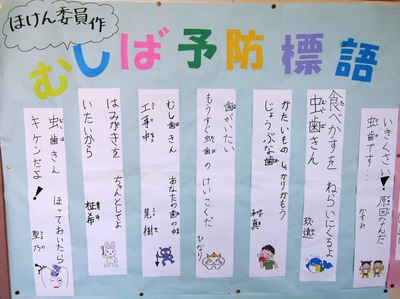 ほけん委員作
むしば予防標語
いきくさい！原因なんだ
虫歯です…
かすみ
食べかすを ねらいにくるよ
虫歯きん
かたいもの しっかりかもう
じょうぶな歯
歯がいたい
もうすぐ虫歯の けいこくだ
ひなり
むし歯きん あなたの歯の中
工事中
見樹
はみがきを ちゃんとしてよ
いたいから
柾希
虫歯きん ほっておいたら
キケンだよ！
聖乃